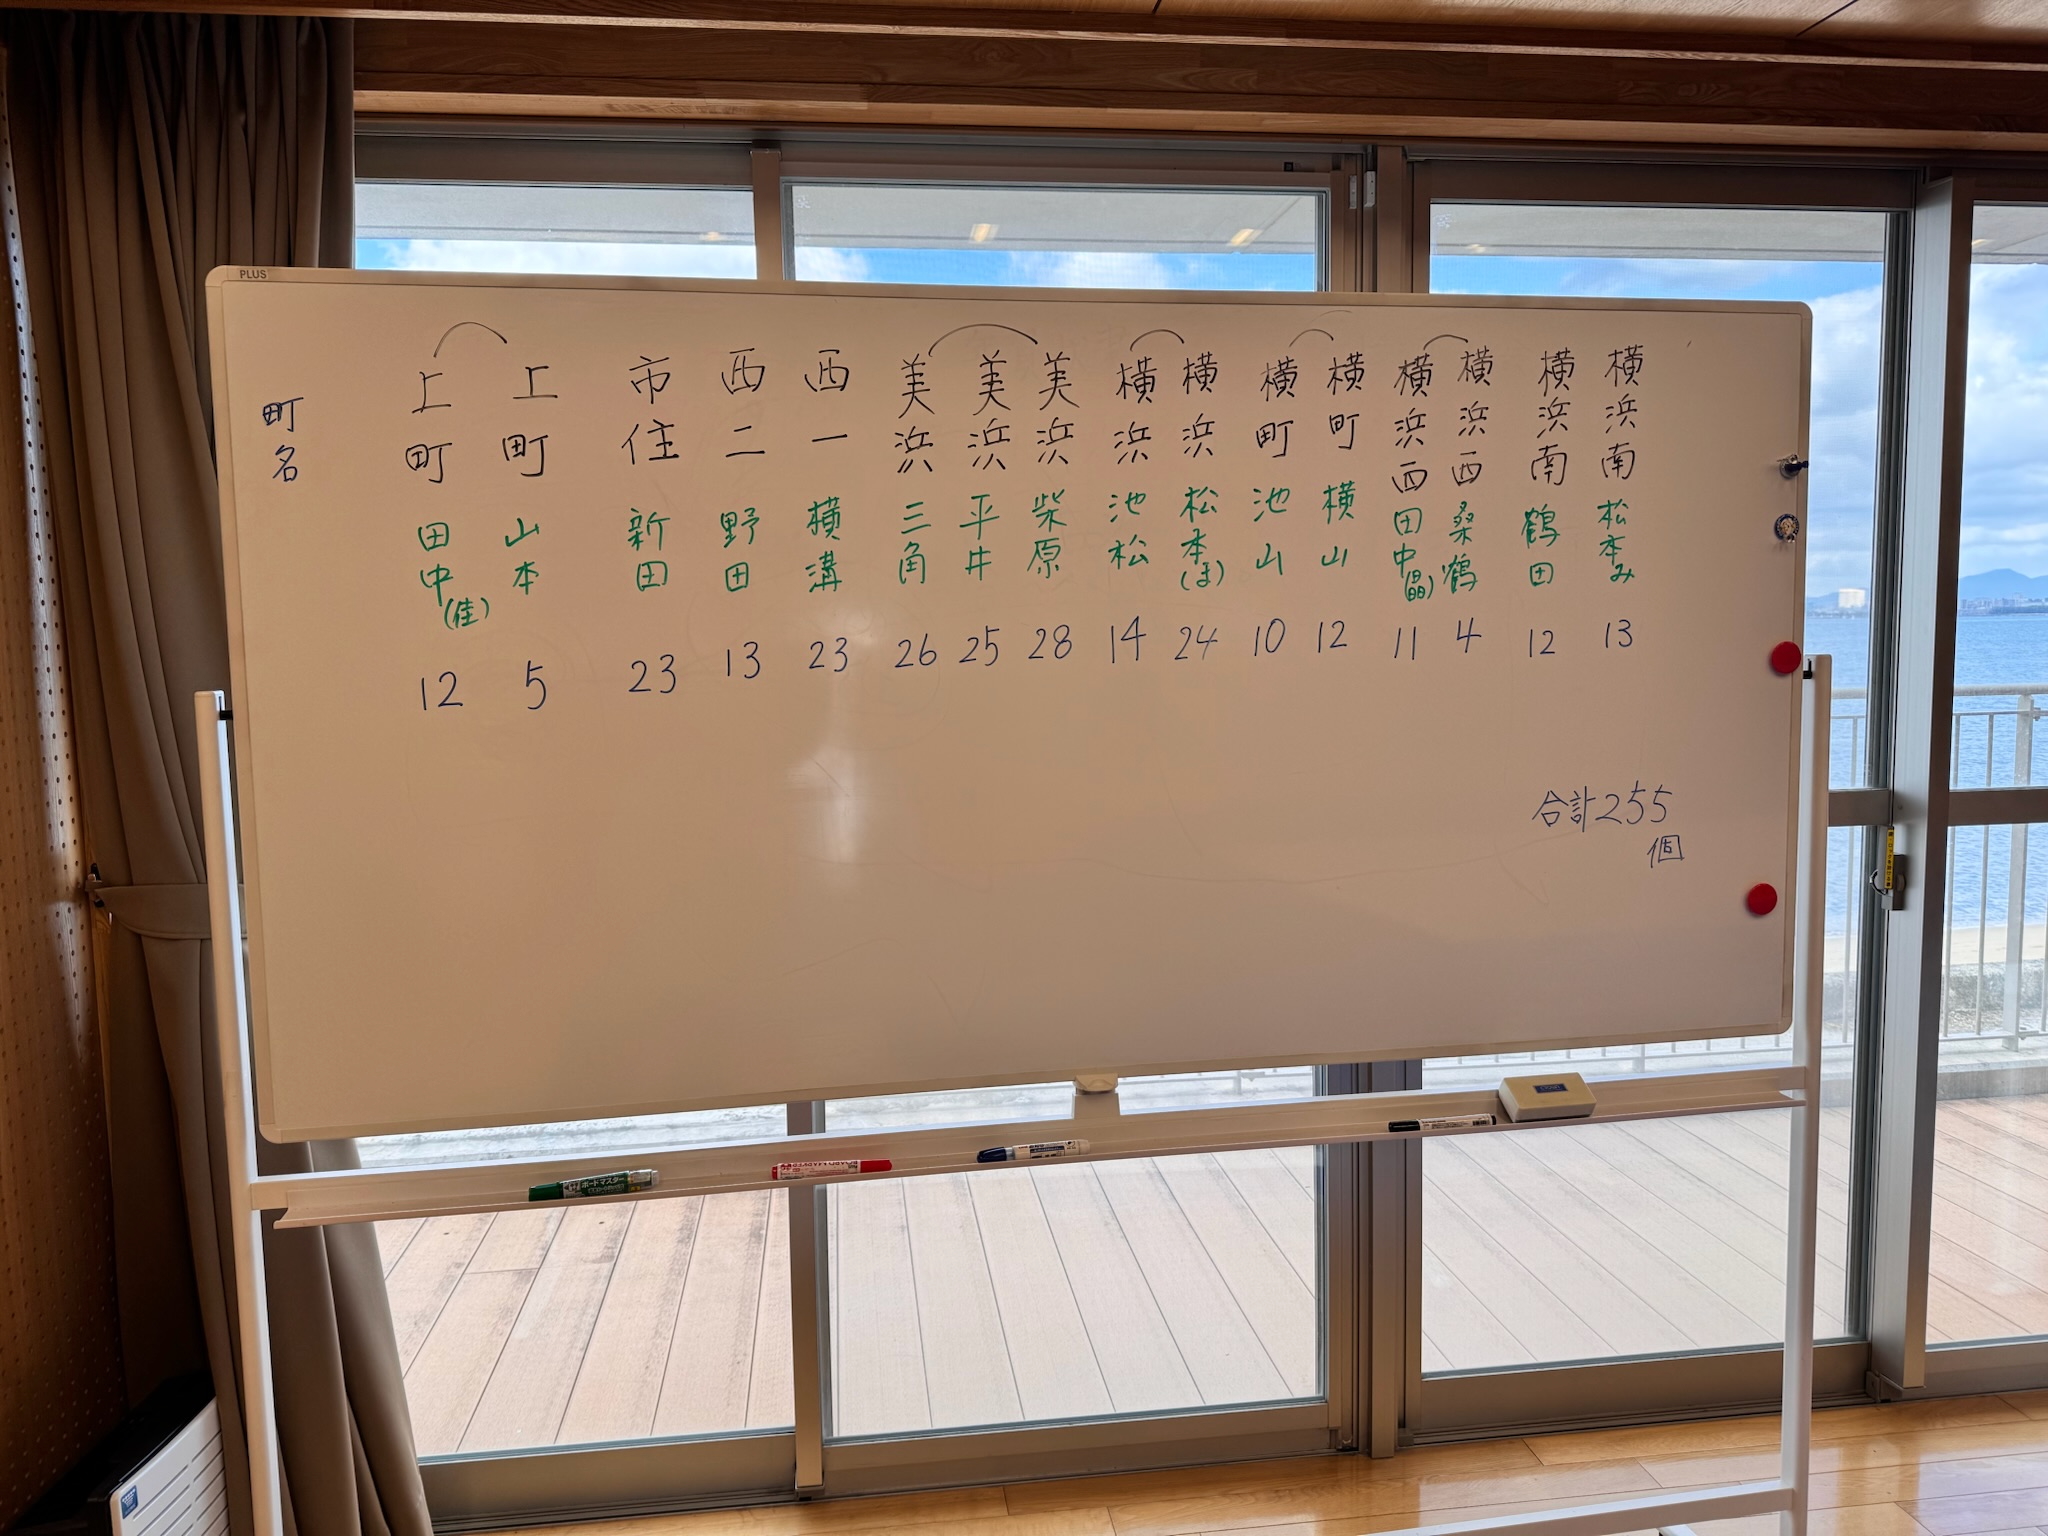 PLUS
町名
上町 田中(佳) 12
上町 山本 5
市住 新田 23
西二 野田 13
西一 横溝 23
美浜 三角 26
美浜 平井 25
美浜 柴原 28
横浜 池松 14
横浜 松本(ま) 24
横町 池山 10
横町 横山 12
横浜西 田中(晶) 11
横浜西 桑鶴 4
横浜南 鶴田 12
横浜南 松本み 13
合計255
個
ボードマスター
BOARD MARKER